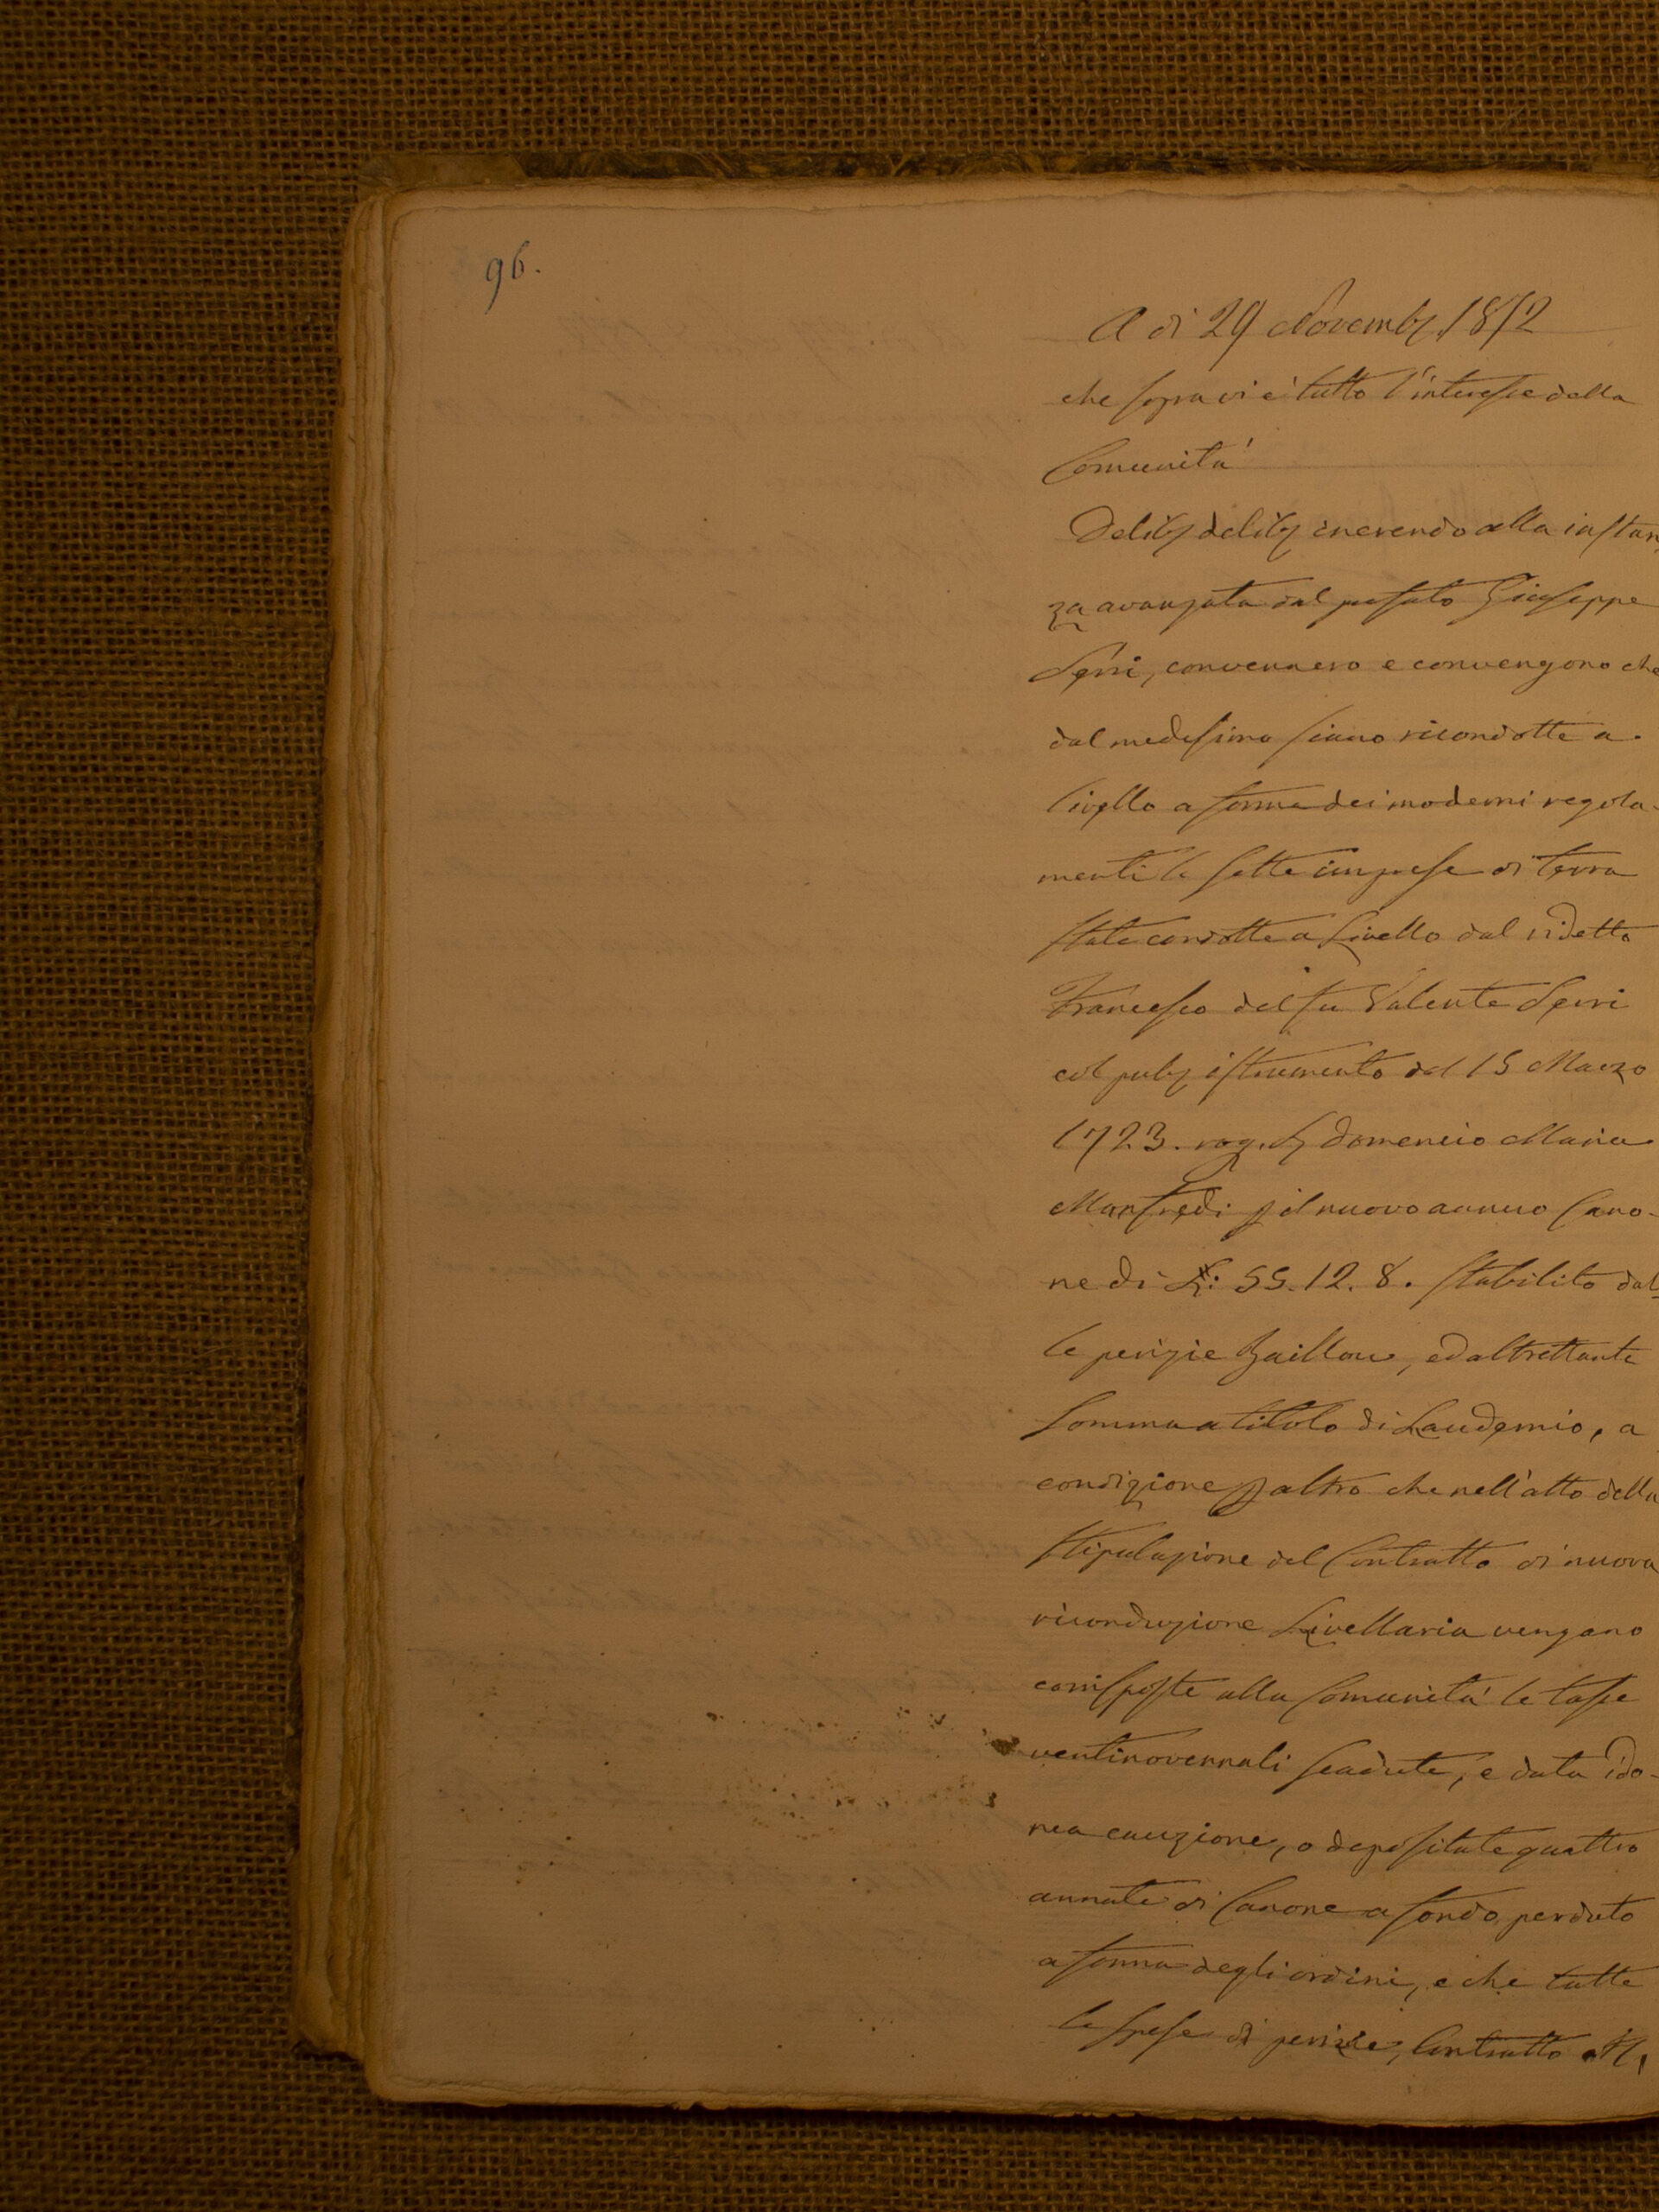 96.
A di 29 Novemb. 1852
che sopra vi è tutto l'interesse della
Comunità
Delib. delib. inerendo alla istan
za avanzata dal prefato Giuseppe
Serri, convennero e convengono che
dal medesimo siano ricondotte a
livello a forma dei moderni regola-
menti le sette imprese di terra
state condotte a Livello dal ridetto
Francesco del fu Valente Serri
col pub. istrumento del 15 Marzo
1723. rog. Domenico Maria
Manfredi p il nuovo annuo Cano-
ne di L: 55. 12. 8. stabilito dal
le perizie Baillou, ed altrettanta
somma a titolo di Laudemio, a
condizione p altro che nell'atto della
stipulazione del Contratto di nuova
riconduzione Livellaria vengano
corrisposte alla Comunità le tasse
ventinovennali scadute, e data ido-
nea cauzione, o depositate quattro
annate di Canone a fondo perduto
a forma degli ordini, e che tutte
le spese di perizie, Contratto